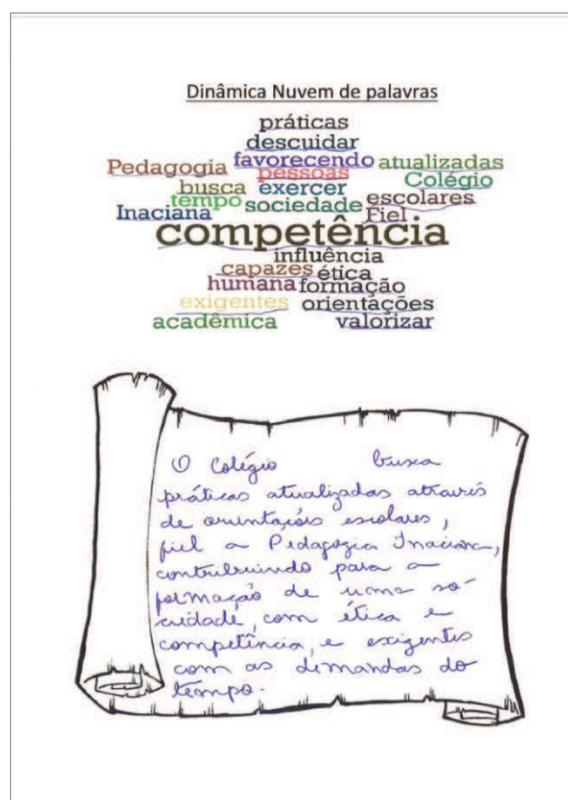 Dinâmica Nuvem de palavras
práticas
descuidar
Pedagogia favorecendo atualizadas
pessoas
busca exercer Colégio
tempo sociedade escolares
Inaciana Fiel
competência
influência
capazes ética
humana formação
exigentes orientações
acadêmica valorizar
O Colégio busca
práticas atualizadas através
de orientações escolares,
fiel a Pedagogia Inaciana,
contribuindo para a
formação de uma so-
ciedade, com ética e
competência, e exigentes
com as demandas do
tempo.